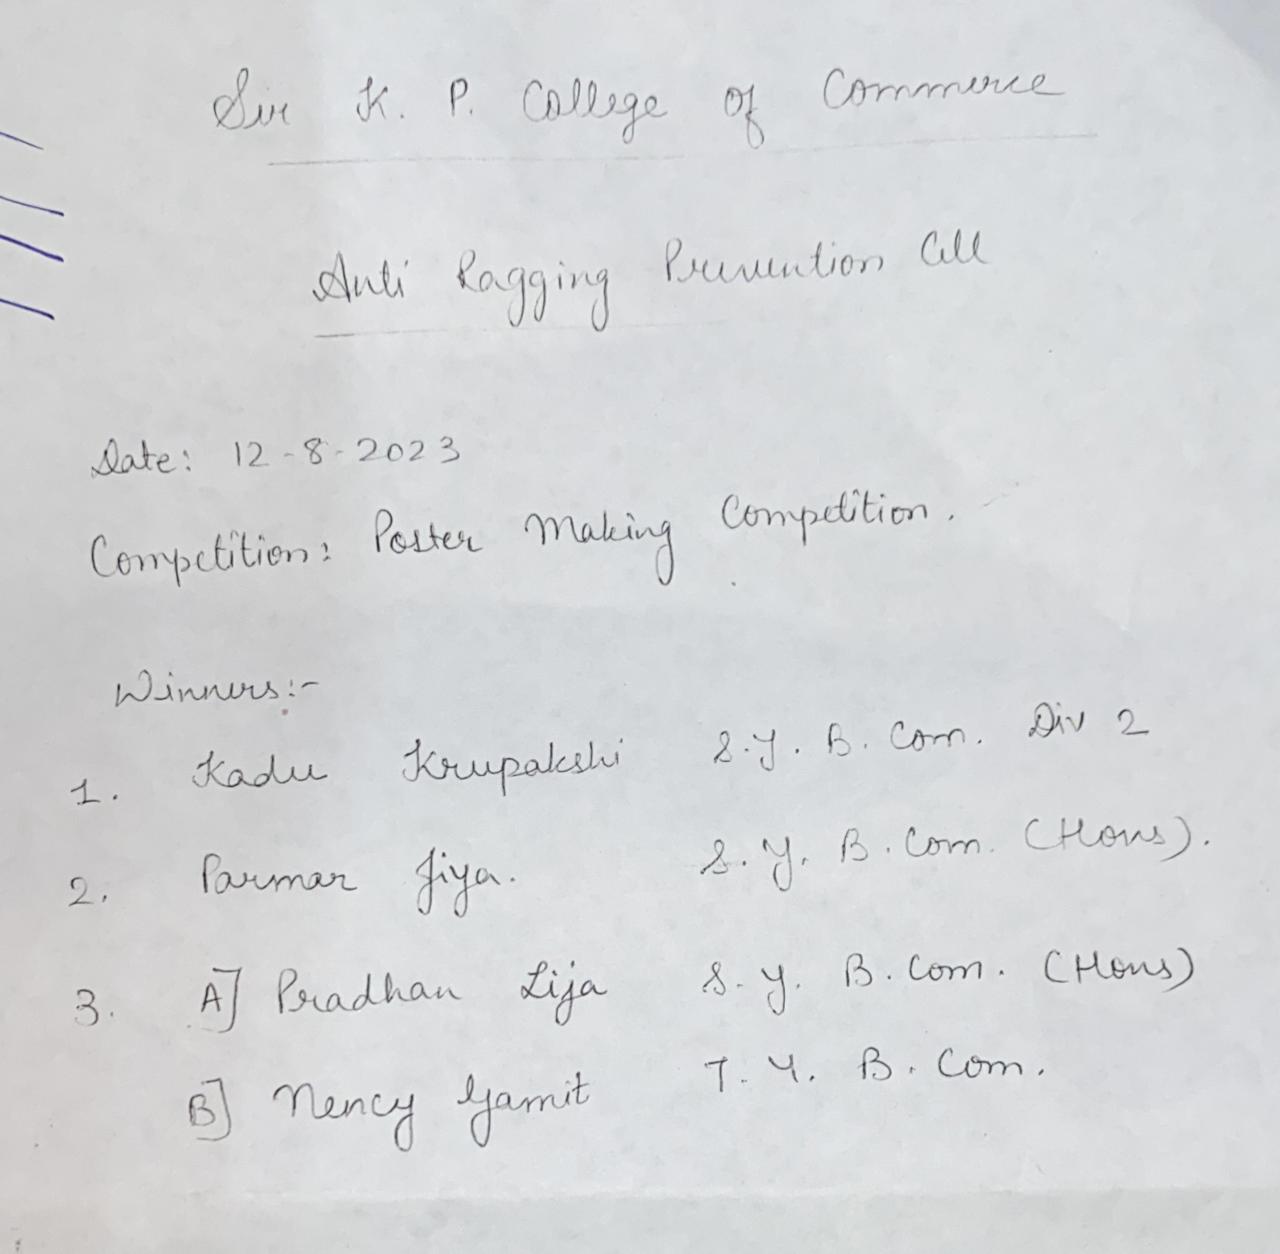 Sir K. P. College of Commerce
Anti Ragging Prevention Cell
Date: 12-8-2023
Competition: Poster Making Competition.
Winners:-
1. Kadu Krupakshi S.Y. B. Com. Div 2
2. Parmar Jiya. S.Y. B. Com. (Hons).
3. A] Pradhan Lija S.Y. B. Com. (Hons)
B] Nency Gamit T.Y. B. Com.